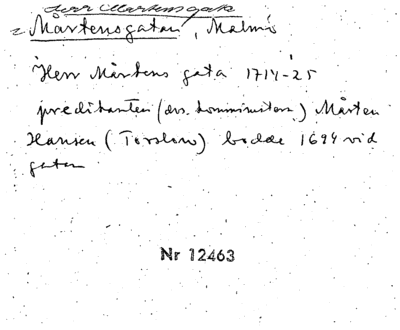 Herr Mårtensgata
Mårtensgatan, Malmö
Herr Mårtens gata 1714-25
predikanten (dvs. komministern) Mårten
Hansen (Torslow) bodde 1694 vid
gatan
Nr 12463